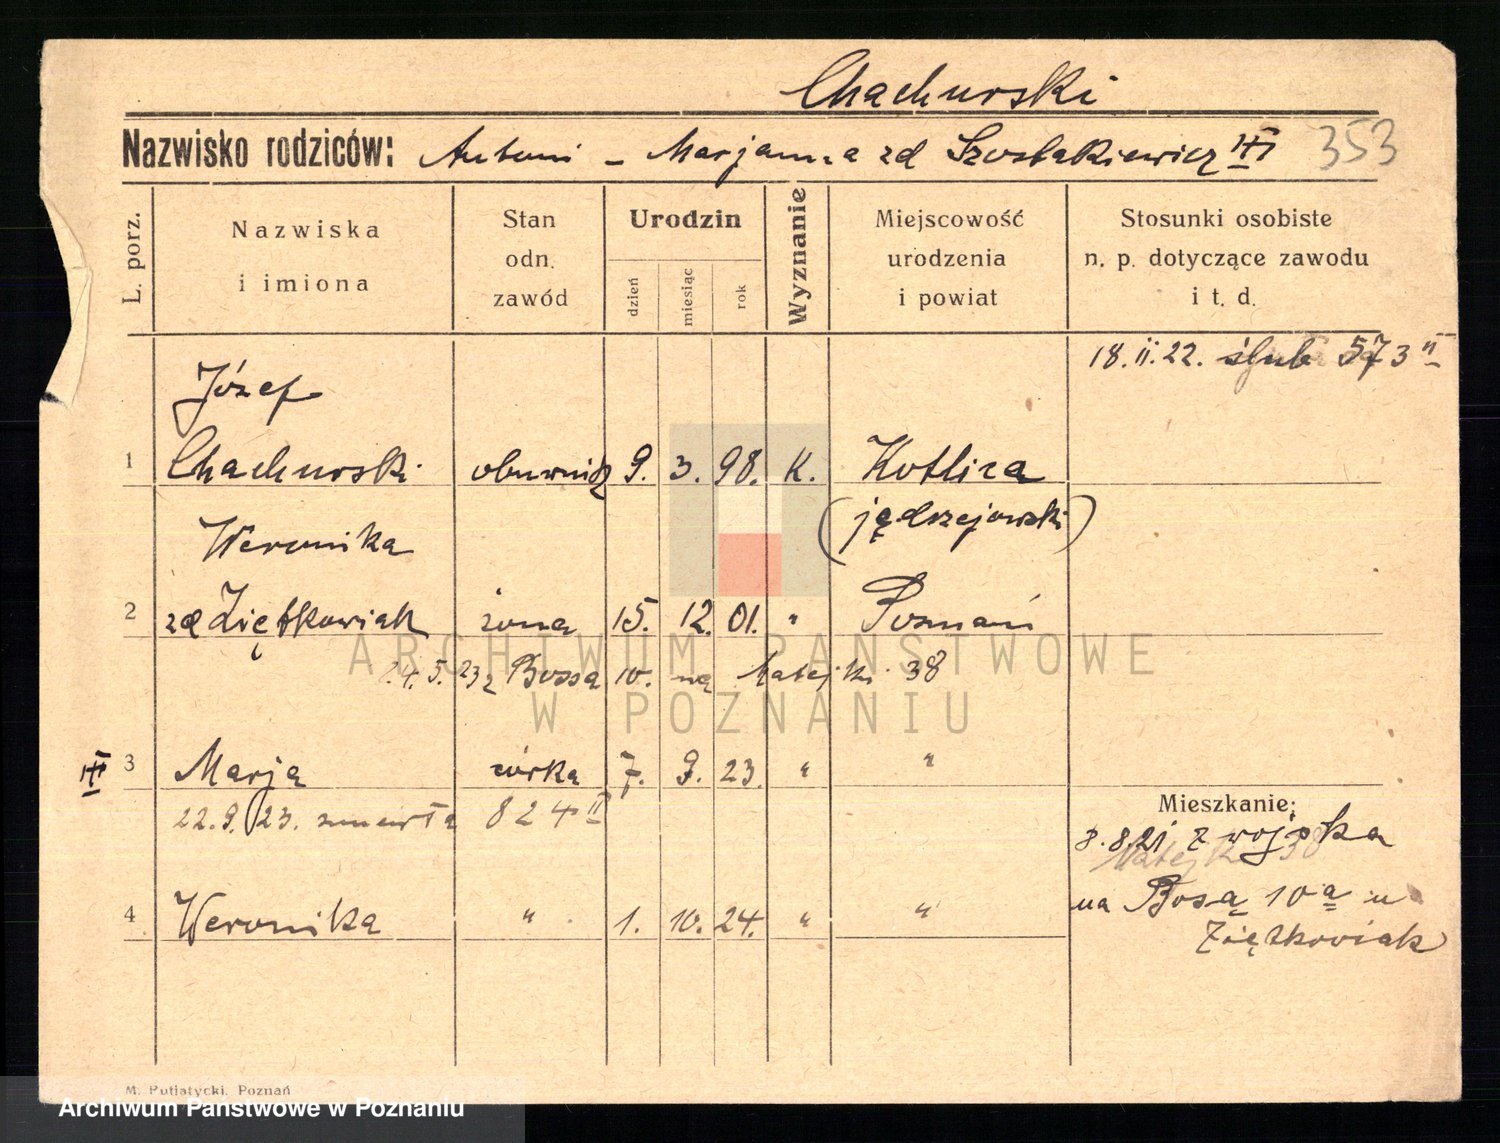 Chachurski
Nazwisko rodziców: Antoni – Marjanna zd Szostakiewicz 353
L. porz. Nazwiska i imiona Stan odn. zawód Urodzin dzień miesiąc rok Wyznanie Miejscowość urodzenia i powiat Stosunki osobiste n. p. dotyczące zawodu i t. d.
18. II. 22. ślub 573 II
Józef
1 Chachurski obuwnicz 9. 3. 98. K. Kotlice
(jędrzejowski)
Weronika
2 zd Ziętkowiak żona 15. 12. 01. " Poznań
24. 5. 23 z Bosa 10. na Matejki 38
3 Marja córka 7. 9. 23. " "
22. 9. 23. zmarła 824 II
Mieszkanie:
8. 8. 21 z wojska
Matejki 38
4 Weronika " 1. 10. 24. " "
na Bosą 10a u
Ziętkowiak
M. Putiatycki, Poznań
ARCHIWUM PAŃSTWOWE
W POZNANIU
Archiwum Państwowe w Poznaniu